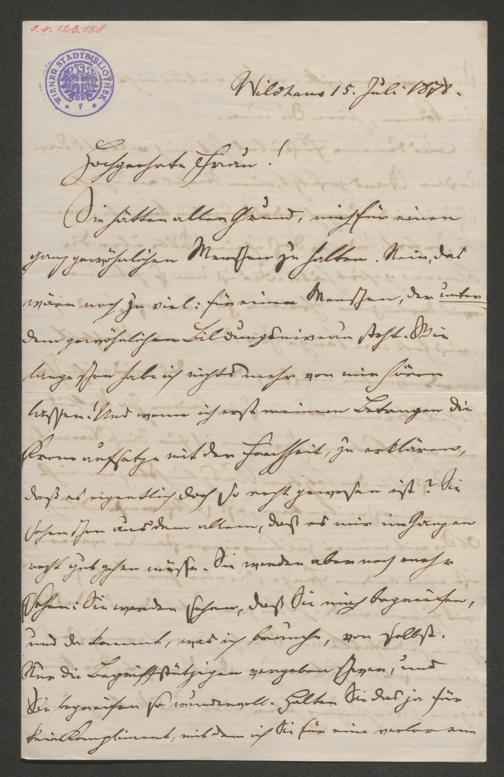 I.N. 123.158
WIENER STADTBIBLIOTHEK
Wildhaus 15. Juli 1878.
Hochgeehrte Frau!
Sie hätten allen Grund, mich für einen
ganz gewöhnlichen Menschen zu halten. Nein, das
wäre noch zu viel: für einen Menschen, der unter
dem gewöhnlichen Bildungsniveau steht. Wie
lange schon habe ich nichts mehr von mir hören
lassen! Und wenn ich erst meinem Betragen die
Krone aufsetze mit der Frechheit, zu erklären,
daß es eigentlich doch so recht gewesen ist? Sie
sehen schon aus dem allem, daß es mir im Ganzen
recht gut gehen müsse. Sie werden aber noch mehr
sehen: Sie werden sehen, daß Sie mich begreifen,
und da kommt, was ich brauche, von selbst.
Nur die Begriffsstützigen vergeben schwer, und
Sie begreifen so wundervoll. Halten Sie das ja für
kein Kompliment, mit dem ich Sie für eine verloren